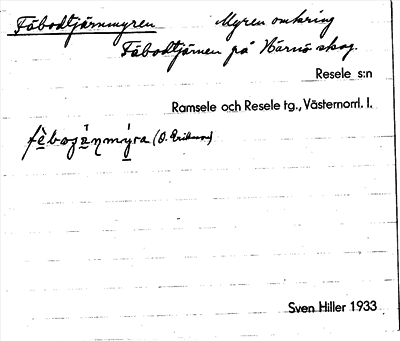 Fäbodtjärnmyren Myren omkring
Fäbodtjärnen på Härnö skog.
Resele s:n
Ramsele och Resele tg., Västernorrl. l.
(O. Eriksson)
Sven Hiller 1933